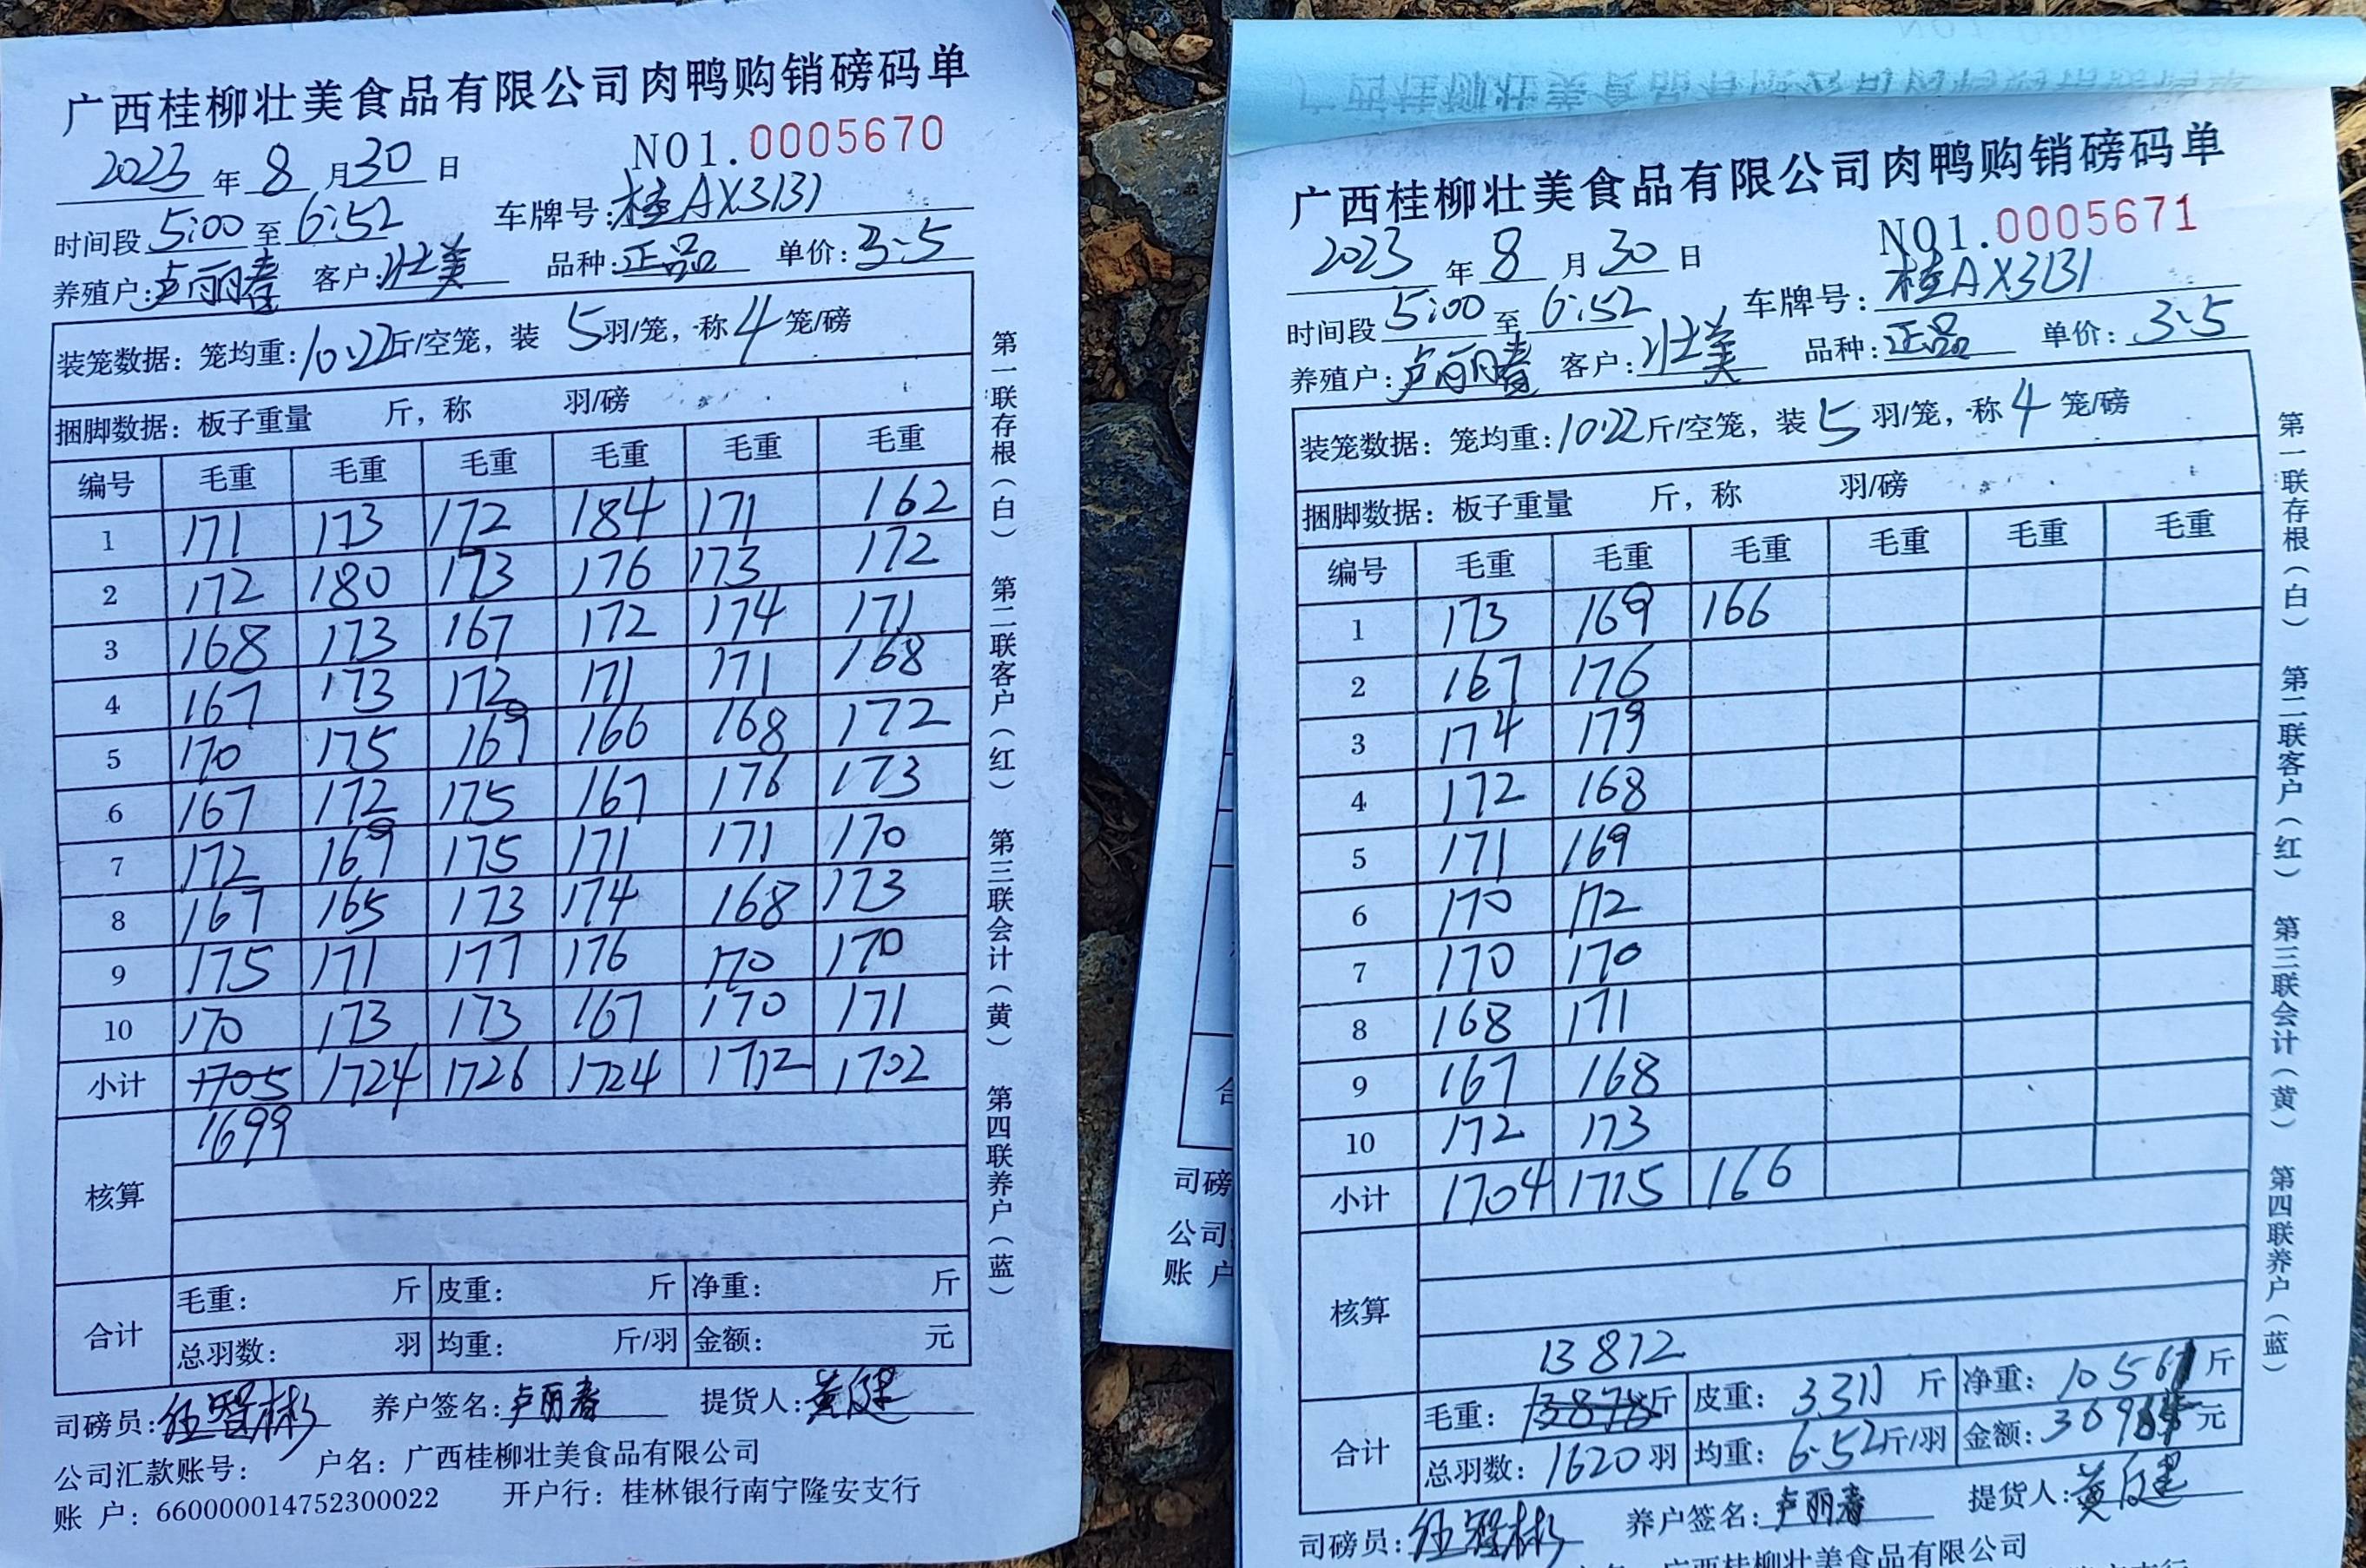 广西桂柳壮美食品有限公司肉鸭购销磅码单
2023年8月30日 NO1.0005670
时间段5:00至6:52 车牌号:桂AX3131
养殖户:卢丽春 客户:壮美 品种:正品 单价:3.5
装笼数据:笼均重:10.22斤/空笼,装5羽/笼,称4笼/磅
捆脚数据:板子重量 斤,称 羽/磅
编号 毛重 毛重 毛重 毛重 毛重 毛重
1 171 173 172 184 171 162
2 172 180 173 176 173 172
3 168 173 167 172 174 171
4 167 173 172 171 171 168
5 170 175 169 166 168 172
6 167 172 175 167 176 173
7 172 169 175 171 171 170
8 167 165 173 174 168 173
9 175 171 177 176 170 170
10 170 173 173 167 170 171
小计 1705 1724 1726 1724 1712 1702
1699
核算
毛重: 斤 皮重: 斤 净重: 斤
合计
总羽数: 羽 均重: 斤/羽 金额: 元
司磅员:伍智彬 养户签名:卢丽春 提货人:黄健
公司汇款账号: 户名:广西桂柳壮美食品有限公司
账 户:660000014752300022 开户行:桂林银行南宁隆安支行
第一联存根(白) 第二联客户(红) 第三联会计(黄) 第四联养户(蓝)
司磅
公司
账 户
广西桂柳壮美食品有限公司肉鸭购销磅码单
2023年8月30日 NO1.0005671
时间段5:00至6:52 车牌号:桂AX3131
养殖户:卢丽春 客户:壮美 品种:正品 单价:3.5
装笼数据:笼均重:10.22斤/空笼,装5羽/笼,称4笼/磅
捆脚数据:板子重量 斤,称 羽/磅
编号 毛重 毛重 毛重 毛重 毛重 毛重
1 173 169 166
2 167 176
3 174 179
4 172 168
5 171 169
6 170 172
7 170 170
8 168 171
9 167 168
10 172 173
小计 1704 1715 166
核算
13872
毛重:13878斤 皮重:3311斤 净重:10561斤
合计
总羽数:1620羽 均重:6.52斤/羽 金额: 元
司磅员:伍智彬 养户签名:卢丽春 提货人:黄健
户名:广西桂柳壮美食品有限公司
第一联存根(白) 第二联客户(红) 第三联会计(黄) 第四联养户(蓝)